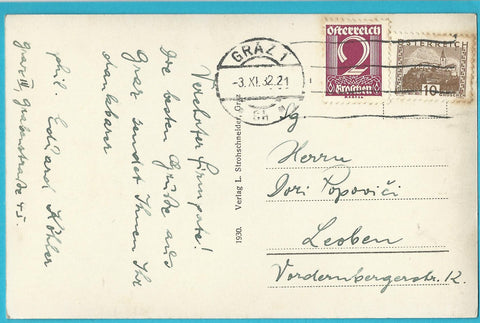 Verehrter Firmpate!
Die besten Grüße aus
Graz sendet Ihnen Ihr
dankbarer
phil. Eduard Köhler
Graz III Grabenstraße 4
GRAZ 1
-3.XI.32.21
Österreich
2
Groschen
ÖSTERREICH
10
1930. Verlag L. Strohschneider, Graz
Herrn
Popovići
Leoben
Vordernbergerstr. 12.